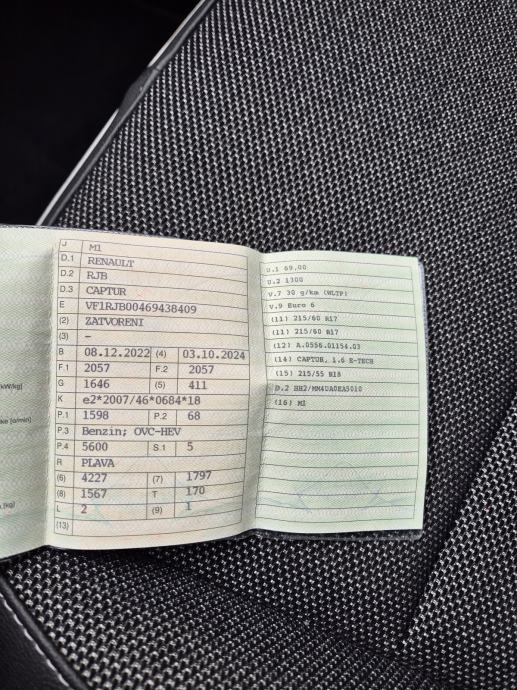 J M1
D.1 RENAULT
D.2 RJB
D.3 CAPTUR
E VF1RJB00469438409
(2) ZATVORENI
(3) –
B 08.12.2022 (4) 03.10.2024
F.1 2057 F.2 2057
G 1646 (5) 411
K e2*2007/46*0684*18
P.1 1598 P.2 68
P.3 Benzin; OVC-HEV
P.4 5600 S.1 5
R PLAVA
(6) 4227 (7) 1797
(8) 1567 T 170
L 2 (9) 1
(13)
kW/kg]
[o/min]
[kg]
U.1 69,00
U.2 1300
V.7 30 g/km (WLTP)
V.9 Euro 6
(11) 215/60 R17
(11) 215/60 R17
(12) A.0556.01154.03
(14) CAPTUR, 1.6 E-TECH
(15) 215/55 R18
D.2 BH2/MM4UA0EA5010
(16) M1